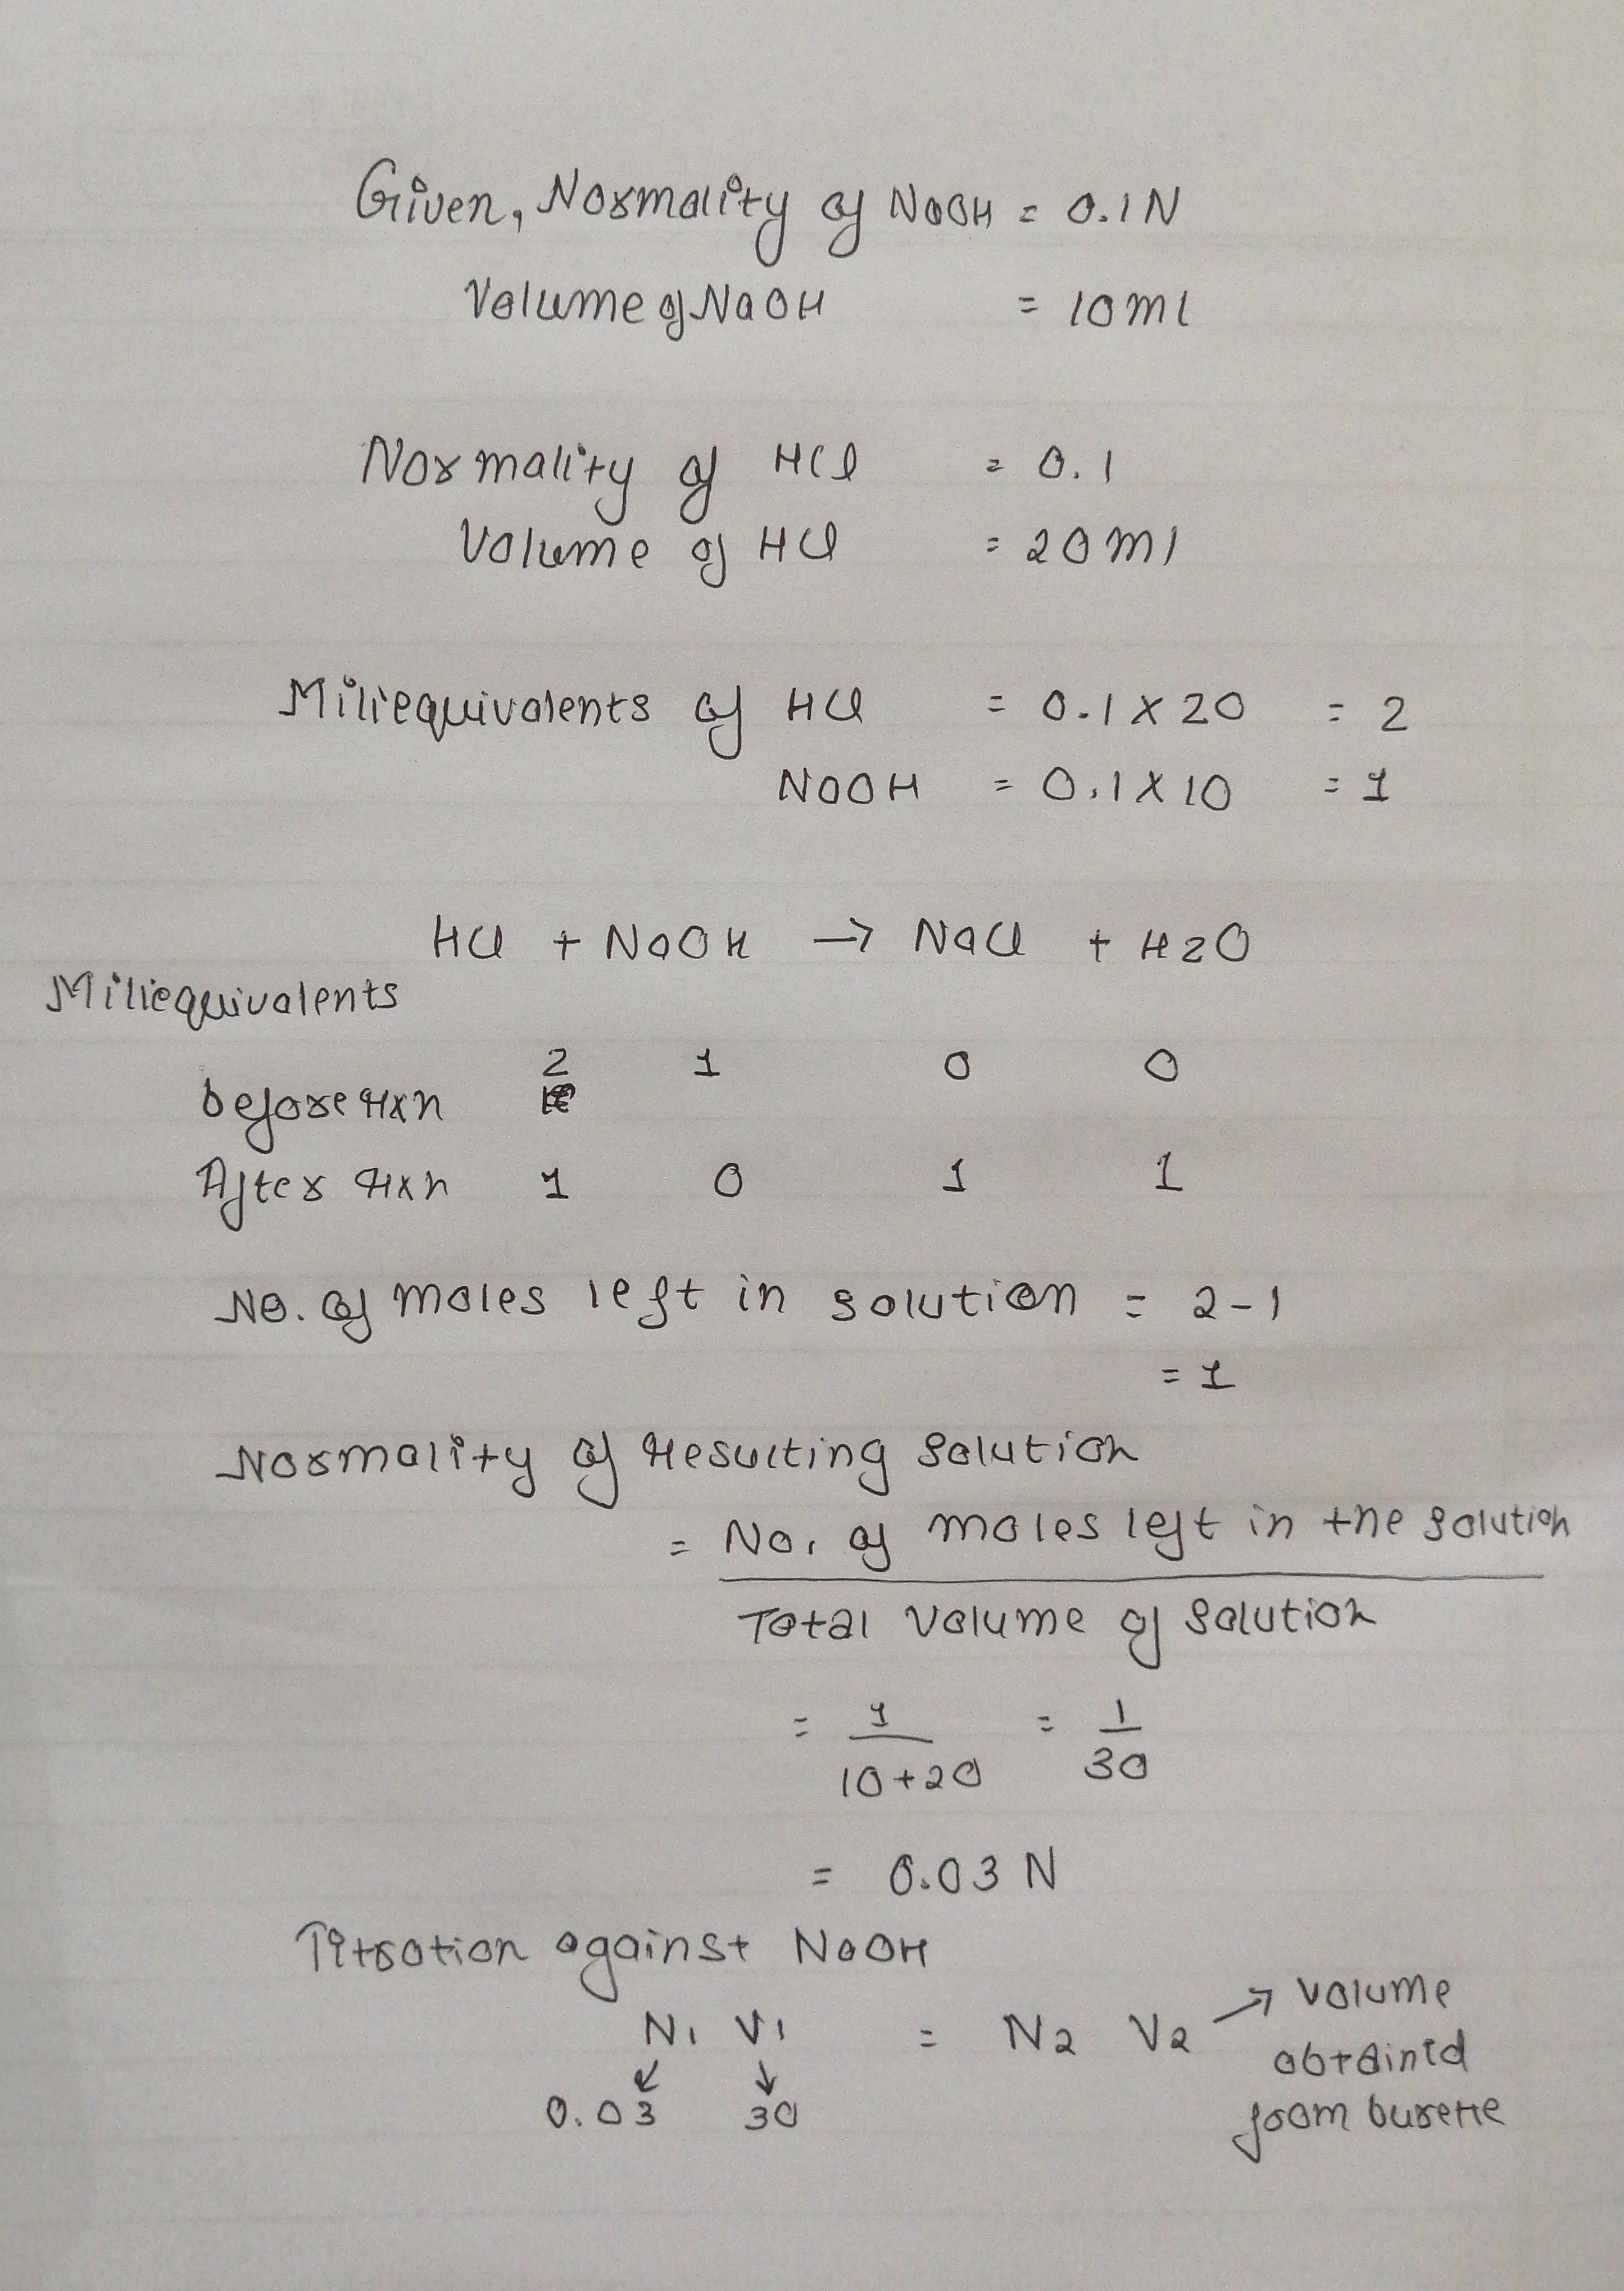 Given, Normality of NaOH = 0.1N
Volume of NaOH = 10ml
Normality of HCl = 0.1
Volume of HCl = 20ml
Milliequivalents of HCl = 0.1 x 20 = 2
NaOH = 0.1 x 10 = 1
HCl + NaOH → NaCl + H2O
Milliequivalents
2 1 0 0
before rxn
After rxn 1 0 1 1
No. of moles left in solution = 2-1
= 1
Normality of resulting solution
= No. of moles left in the solution
Total volume of solution
= 1/10+20 = 1/30
= 0.03 N
Titration against NaOH
N1 V1 = N2 V2 → volume
obtained
0.03 30
from burette